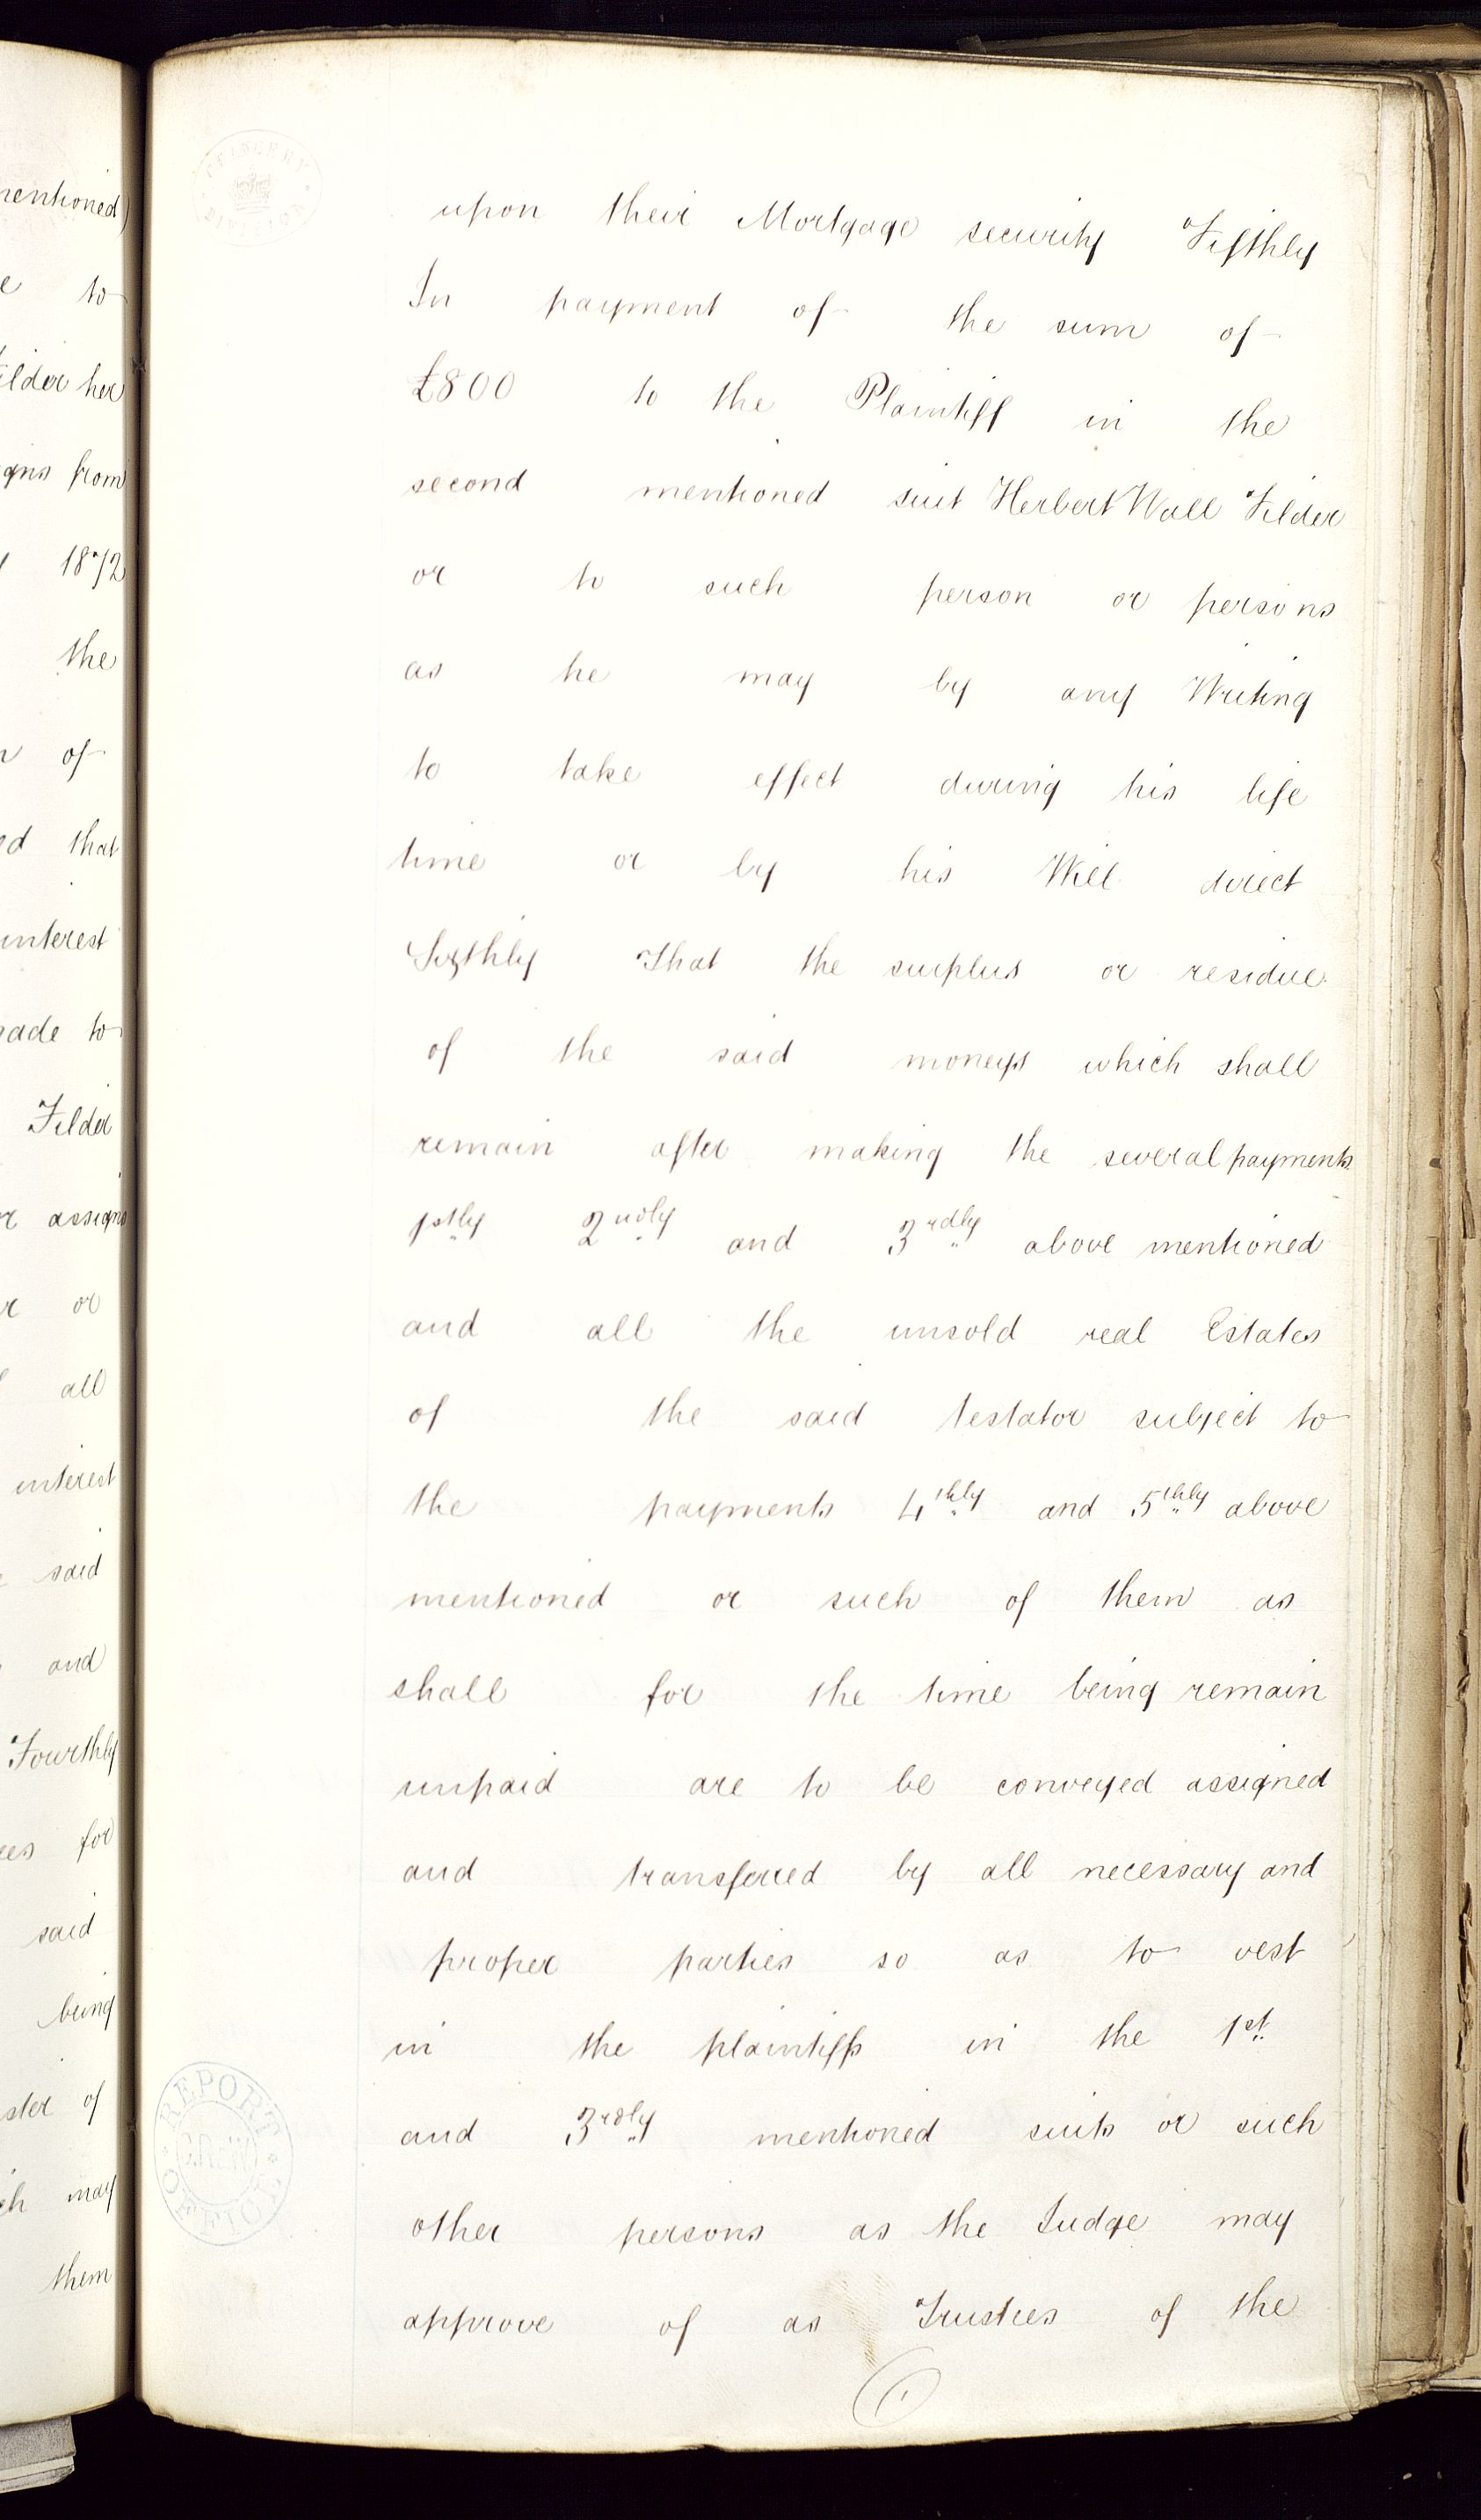 mentioned)
to
ilder her
gns from
1872
the
of
ed that
interest
ade to
Filder
r assigns
or
all
interest
said
and
Fourthly
for
said
being
ster of
ch may
them
CHANCERY DIVISION
upon their Mortgage security Fifthly
In payment of the sum of
£800 to the Plaintiff in the
second mentioned suit Herbert Wall Filder
or to such person or persons
as he may by any Writing
to take effect during his life
time or by his Will direct
Sixthly That the surplus or residue
of the said moneys which shall
remain after making the several payments
1stly 2ndly and 3rdly above mentioned
and all the unsold real Estates
of the said testator subject to
the payments 4thly and 5thly above
mentioned or such of them as
shall for the time being remain
unpaid are to be conveyed assigned
and transferred by all necessary and
proper parties so as to vest
in the plaintiffs in the 1st
and 3rdly mentioned suits or such
other persons as the Judge may
approve of as Trustees of the
REPORT OFFICE
1